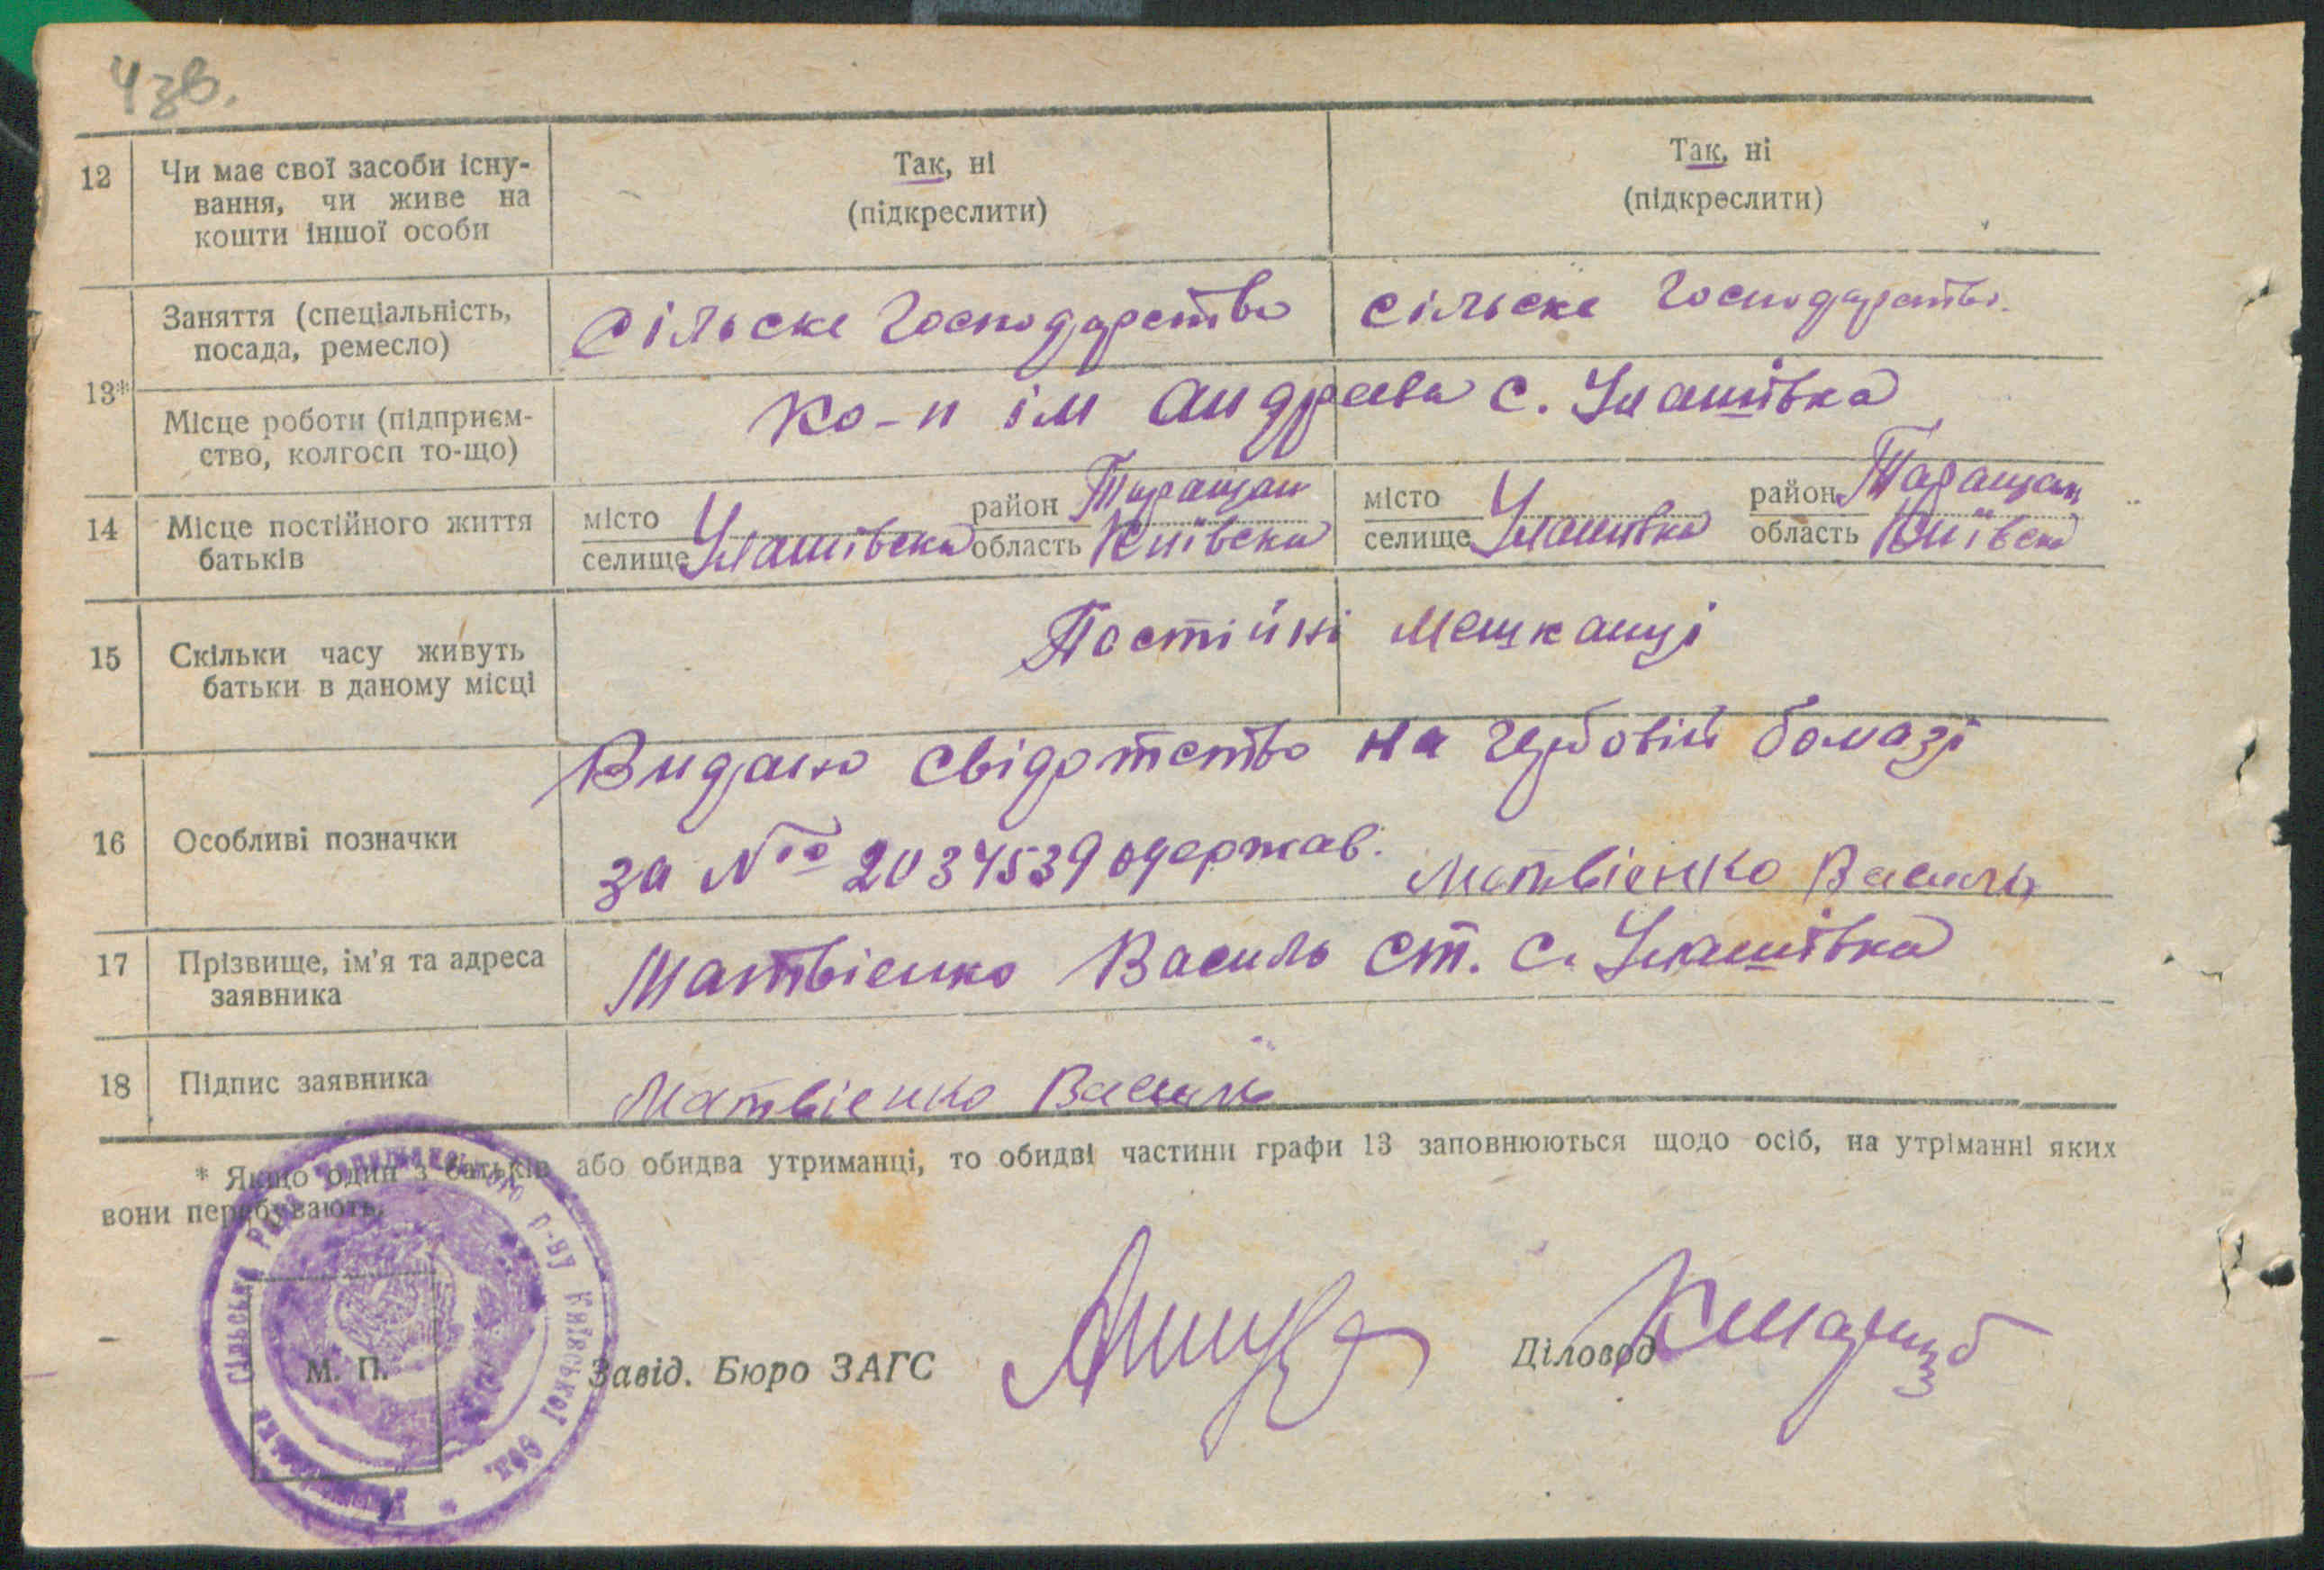 43в.
12 Чи має свої засоби існу-
вання, чи живе на
кошти іншої особи
Так, ні
(підкреслити)
Так, ні
(підкреслити)
13*
Заняття (спеціальність,
посада, ремесло)
Сільске Господарство
сільске Господарство.
Місце роботи (підприєм-
ство, колгосп то-що)
Ко-п ім Андрєєва с. Улашівка
14 Місце постійного життя
батьків
місто
селище Улашівска
район Таращан
область Київска
місто
селище Улашівка
район Таращан
область Київска
15 Скільки часу живуть
батьки в даному місці
Постійні мешканці
16 Особливі позначки
Видано свідотство на гербовій бомазі
за № 2034539 одержав. Матвієнко Василь
17 Прізвище, ім'я та адреса
заявника
Матвієнко Василь ст. с. Улашівка
18 Підпис заявника
Матвієнко Василь
* Якщо один з батьків або обидва утриманці, то обидві частини графи 13 заповнюються щодо осіб, на утріманні яких
вони перебувають.
сільська Рада р-ну Київської обл.
М. П.
Завід. Бюро ЗАГС
Діловод